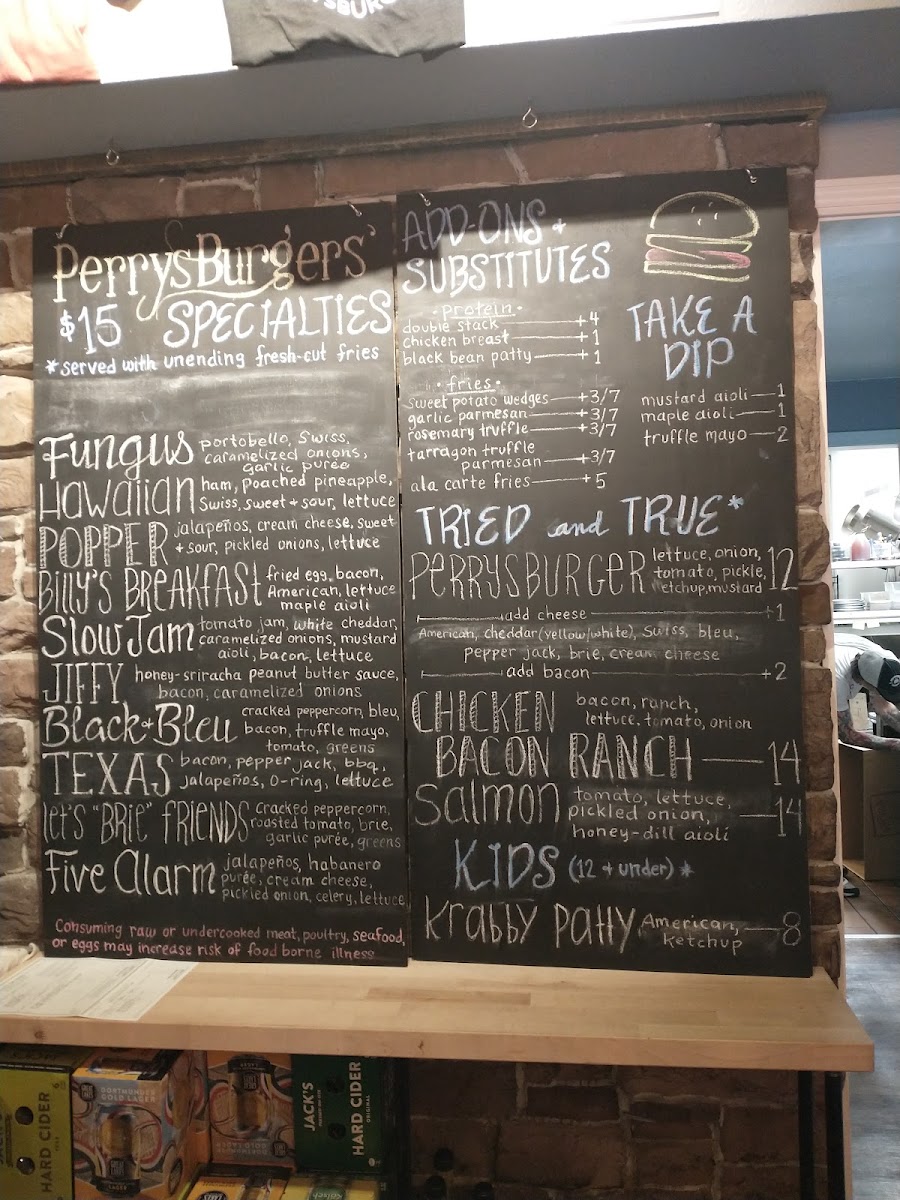 PerrysBurgers'
$15 SPECIALTIES
*served with unending fresh-cut fries
Fungus portobello, Swiss,
caramelized onions,
garlic purée
Hawaiian ham, poached pineapple,
Swiss, sweet + sour, lettuce
POPPER jalapeños, cream cheese, sweet
+ sour, pickled onions, lettuce
BILLY'S BREAKFAST fried egg, bacon,
American, lettuce
maple aioli
Slow Jam tomato jam, white cheddar,
caramelized onions, mustard
aioli, bacon, lettuce
JIFFY honey-sriracha peanut butter sauce,
bacon, caramelized onions
Black + Bleu cracked peppercorn, bleu,
bacon, truffle mayo,
tomato, greens
TEXAS bacon, pepper jack, bbq,
jalapeños, O-ring, lettuce
let's "BRIE" FRIENDS cracked peppercorn,
roasted tomato, brie,
garlic purée, greens
Five Alarm jalapeños, habanero
purée, cream cheese,
pickled onion, celery, lettuce
Consuming raw or undercooked meat, poultry, seafood,
or eggs may increase risk of food borne illness
ADD-ONS +
SUBSTITUTES
• Protein •
double stack +4
chicken breast +1
black bean patty +1
• fries •
sweet potato wedges +3/7
garlic parmesan +3/7
rosemary truffle +3/7
tarragon truffle
parmesan +3/7
ala carte fries +5
TAKE A
DIP
mustard aioli 1
maple aioli 1
truffle mayo 2
TRIED and TRUE*
PERRYSBURGER lettuce, onion,
tomato, pickle,
ketchup, mustard 12
add cheese +1
American, cheddar (yellow/white), Swiss, bleu,
pepper jack, brie, cream cheese
add bacon +2
CHICKEN bacon, ranch,
lettuce, tomato, onion
BACON RANCH 14
Salmon tomato, lettuce,
pickled onion,
honey-dill aioli 14
KIDS (12 + under) *
Krabby Patty American,
ketchup 8
HARD CIDER
DORTMUNDER
GOLD LAGER
GOLD LAGER
JACK'S
HARD CIDER
ORIGINAL